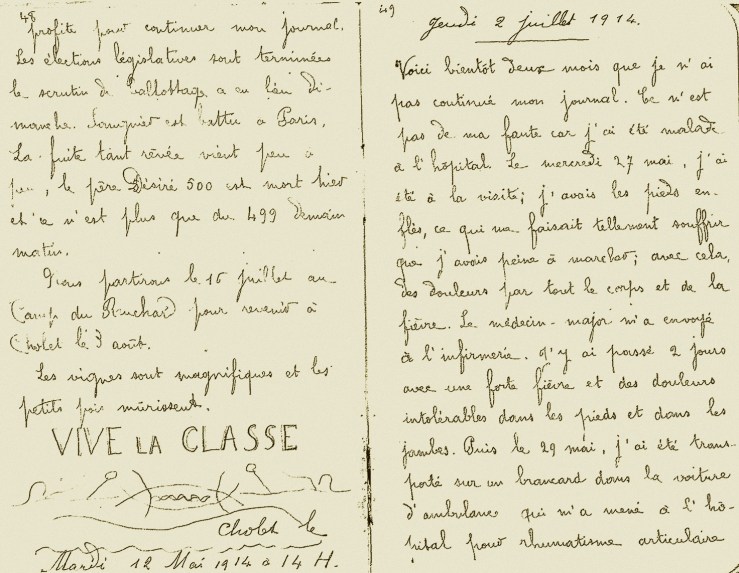 48
profite pour continuer mon journal.
Les élections législatives sont terminées
le scrutin de ballottage a eu lieu di-
manche. est battu a Paris,
La fuite tant rêvée vient peu a
peu, le père Désiré 500 est mort hier
et ce n'est plus que du 499 demain
matin.
Nous partirons le 16 juillet au
Camp du Ruchard pour revenir à
Cholet le 3 août.
Les vignes sont magnifiques et les
petits pois mûrissent.
VIVE LA CLASSE
Cholet le
Mardi 12 Mai 1914 à 14 H.
49
Jeudi 2 juillet 1914.
Voici bientôt deux mois que je n'ai
pas continué mon journal. Ce n'est
pas de ma faute car j'ai été malade
à l'hôpital. Le mercredi 27 mai, j'ai
été à la visite; j'avais les pieds en-
flés, ce qui me faisait tellement souffrir
que j'avais peine à marcher; avec cela,
des douleurs par tout le corps et de la
fièvre. Le médecin-major m'a envoyé
à l'infirmerie. J'y ai passé 2 jours
avec une forte fièvre et des douleurs
intolérables dans les pieds et dans les
jambes. Puis le 29 mai, j'ai été trans-
porté sur un brancard dans la voiture
d'ambulance qui m'a mené à l'hô-
pital pour rhumatisme articulaire